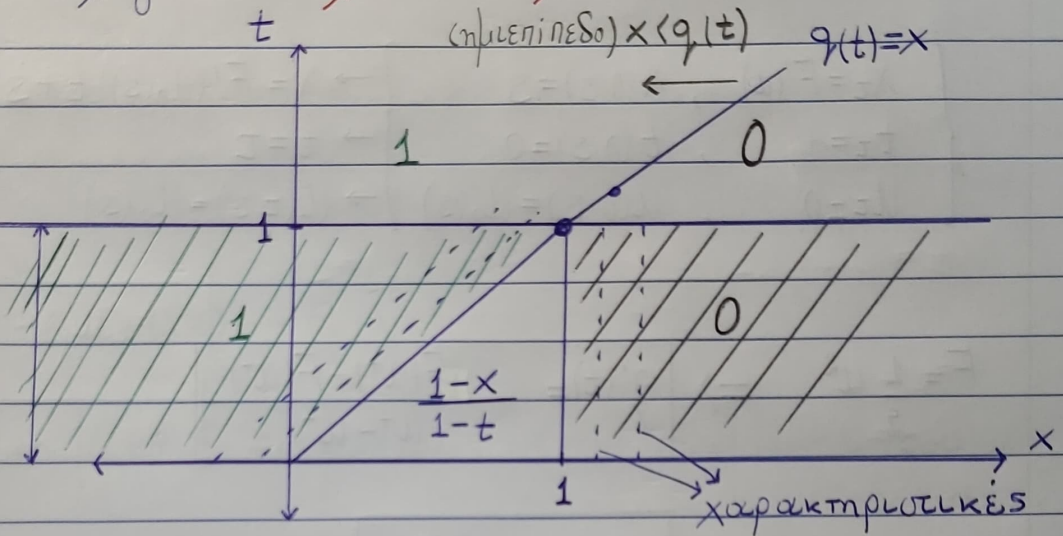 t
(ημιεπίπεδο) x<q(t)
q(t)=x
1
0
1
1
0
1-x
1-t
x
1
χαρακτηριστικές